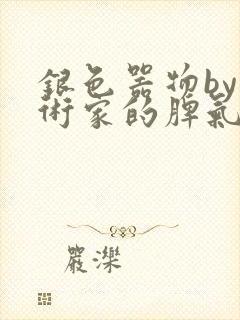 銀色器物by
術家的脾氣
嚴濼